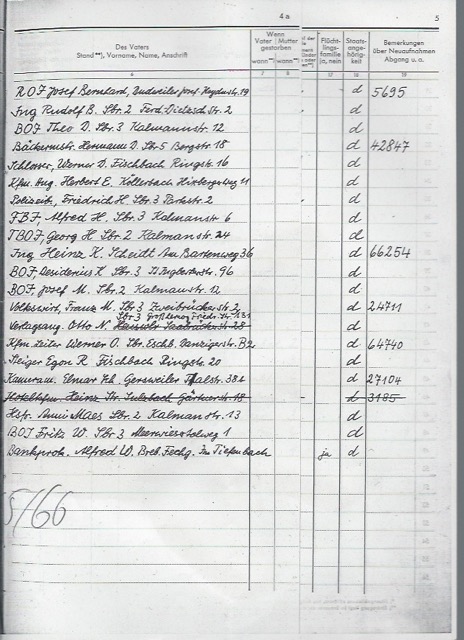 4a
5
Des Vaters
Stand **), Vorname, Name, Anschrift
Wenn
Vater Mutter
gestorben
wann **) wann **)
Flücht-
lings-
familie
ja, nein
Staats-
ange-
hörig-
keit
Bemerkungen
über Neuaufnahmen
Abgang u. a.
6 7 8 17 18 19
ROJ Josef Bernhard, Dudweiler Josef-Haydnstr. 19 d 5695
Ing Rudolf B. Sbr. 2 Ferd. Dietzsch str. 2 d
BOJ Theo D. Sbr. 3 Kalmannstr. 12 d
Bäckermstr. Hermann D. Sbr 5 Bergstr. 18 d 42847
Schlosser, Werner D. Fischbach Ringstr. 16 d
Kfm. Ang. Herbert E. Köllerbach 11 d
Polizeib., Friedrich H. Sbr. 3 Parkstr. 2 d
Alfred H. Sbr. 3 Kalmanstr. 6 d
TBOJ, Georg H. Sbr. 2 Kalmanstr. 24 d
Ing Heinz K. Scheidt Am Bartenweg 36 d 66254
BOJ Desiderius K. Sbr. 3 96 d
BOJ, Josef M. Sbr. 2 Kalmanstr. 12 d
Volkswirt, Franz M. Sbr 3 Zweibrückerstr. 2 d 24711
Sbr 3 Großherzog Friedr. Str. 131
Verlagsang. Otto N. 28 d
Kfm. Leiter Werner O. Sbr. Eschb. Danzigerstr. B2 d 64740
Steiger Egon R. Fischbach Ringstr. 20 d
Kameram. Elmar Sch. Gersweiler Talstr. 38a d 27104
Heinz Str. Sulzbach Gärtnerstr. 18 d 3185
Hsfr. Anni Maes Sbr. 2 Kalmanstr. 13 d
BOJ Fritz W. Sbr. 3 Meerwiesertalweg 1 d
Bankprok. Alfred W. Breb. Fechg. Im Tiefenbach ja d
5/66